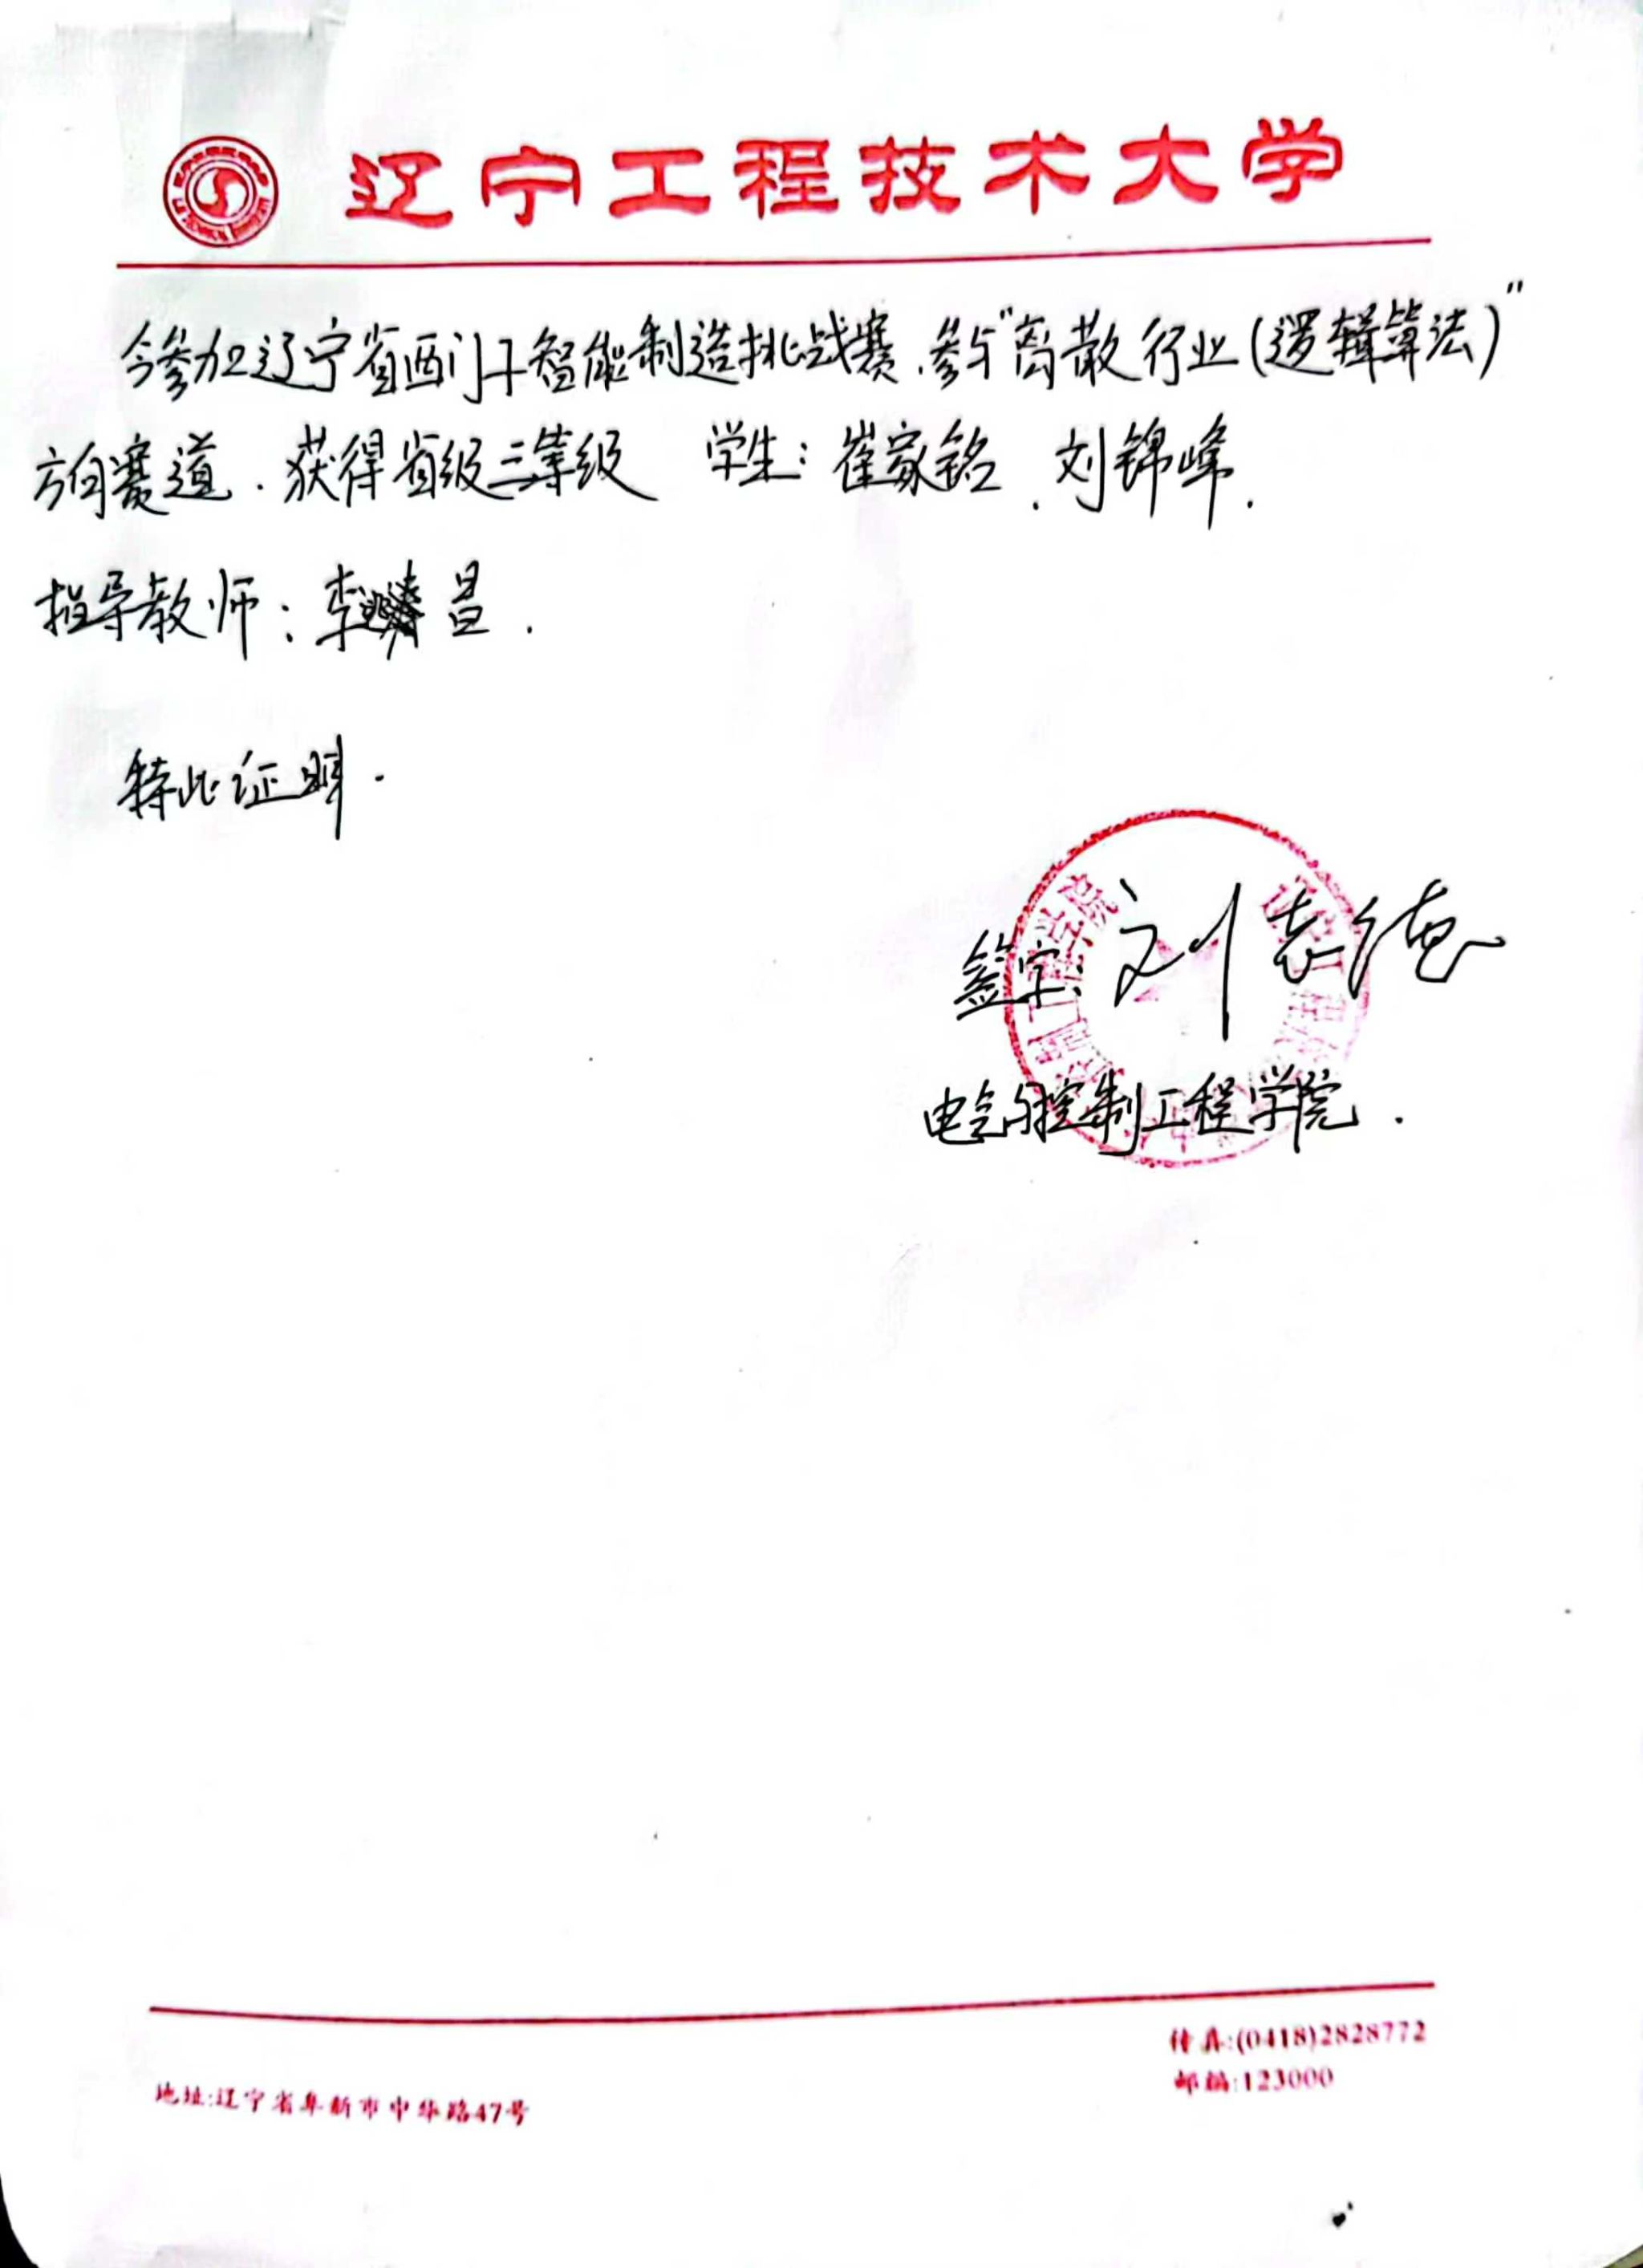 辽宁工程技术大学
今参加辽宁省西门子智能制造挑战赛,参与"离散行业(逻辑算法)"
方向赛道.获得省级三等级 学生:崔家铭、刘锦峰.
指导教师:李 昌.
特此证明.
签字:刘志德
电气与控制工程学院.
传真:(0418)2828772
邮编:123000
地址:辽宁省阜新市中华路47号